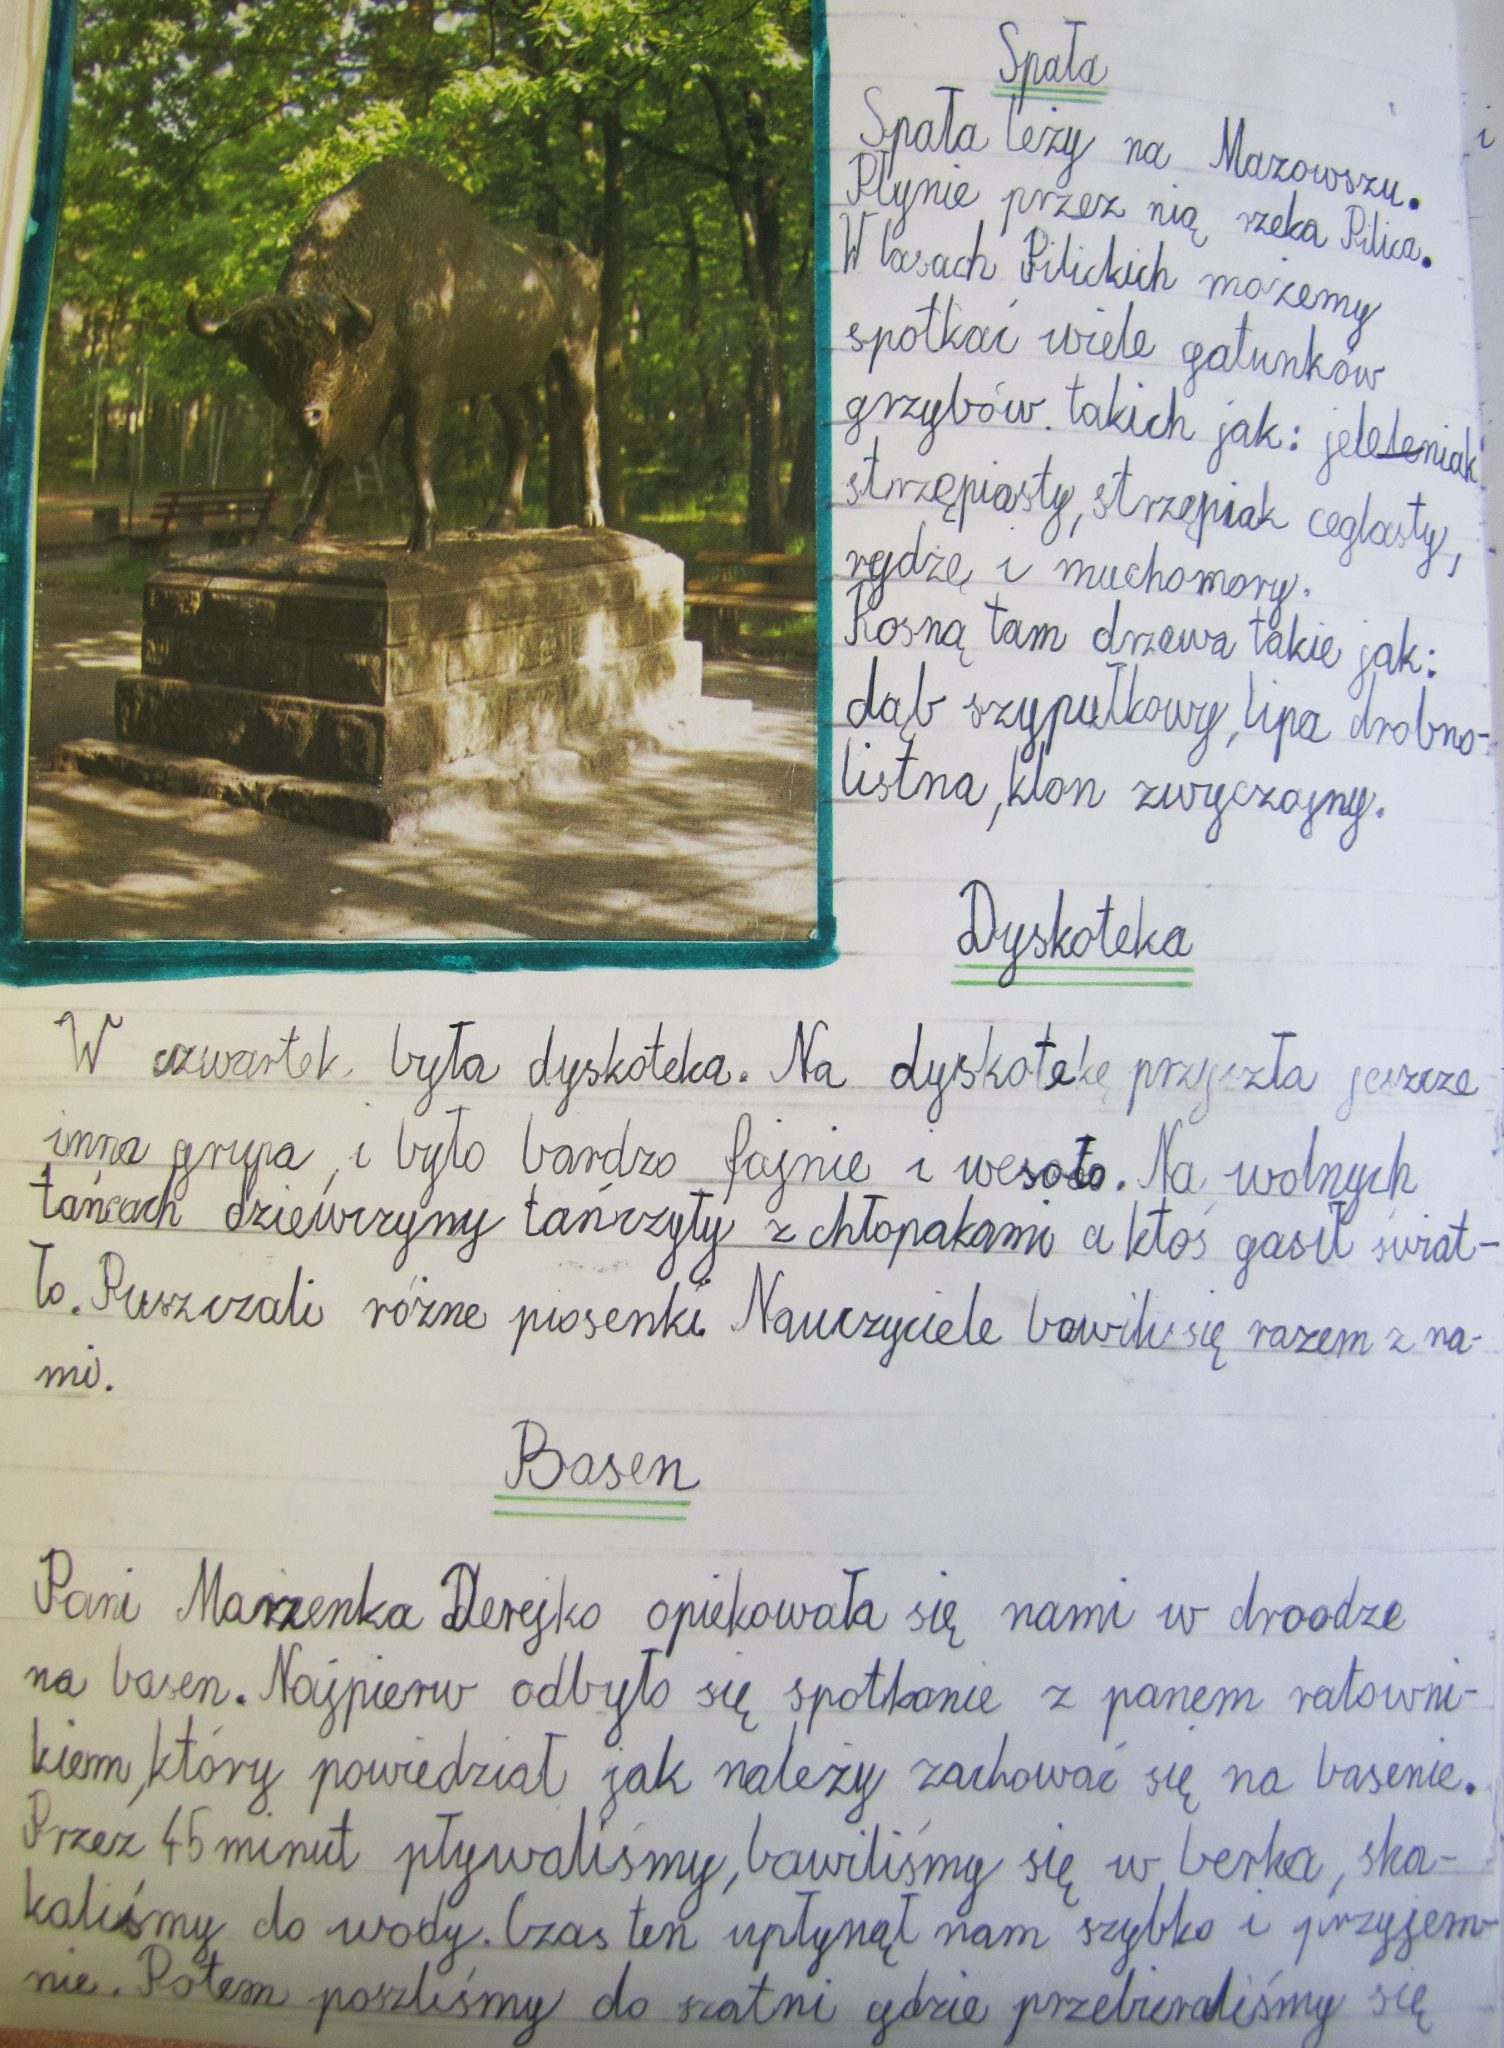 Spała
Spała leży na Mazowszu.
Płynie przez nią rzeka Pilica.
W lasach Pilickich możemy
spotkać wiele gatunków
grzybów. takich jak: jeleniak
strzępiasty, strzępiak ceglasty,
rydzę i muchomory.
Rosną tam drzewa takie jak:
dąb szypułkowy, lipa drobno-
listna, klon zwyczajny.
Dyskoteka
W czwartek była dyskoteka. Na dyskotekę przyszła jeszcze
inna grupa i było bardzo fajnie i wesoło. Na wolnych
tańcach dziewczyny tańczyły z chłopakami a ktoś gasił świat-
ło. Puszczali różne piosenki. Nauczyciele bawili się razem z na-
mi.
Basen
Pani Marzenka Derejko opiekowała się nami w droodze
na basen. Najpierw odbyło się spotkanie z panem ratowni-
kiem, który powiedział jak należy zachować się na basenie.
Przez 45 minut pływaliśmy, bawiliśmy się w berka, ska-
kaliśmy do wody. Czas ten upłynął nam szybko i przyjem-
nie. Potem poszliśmy do szatni gdzie przebieraliśmy się